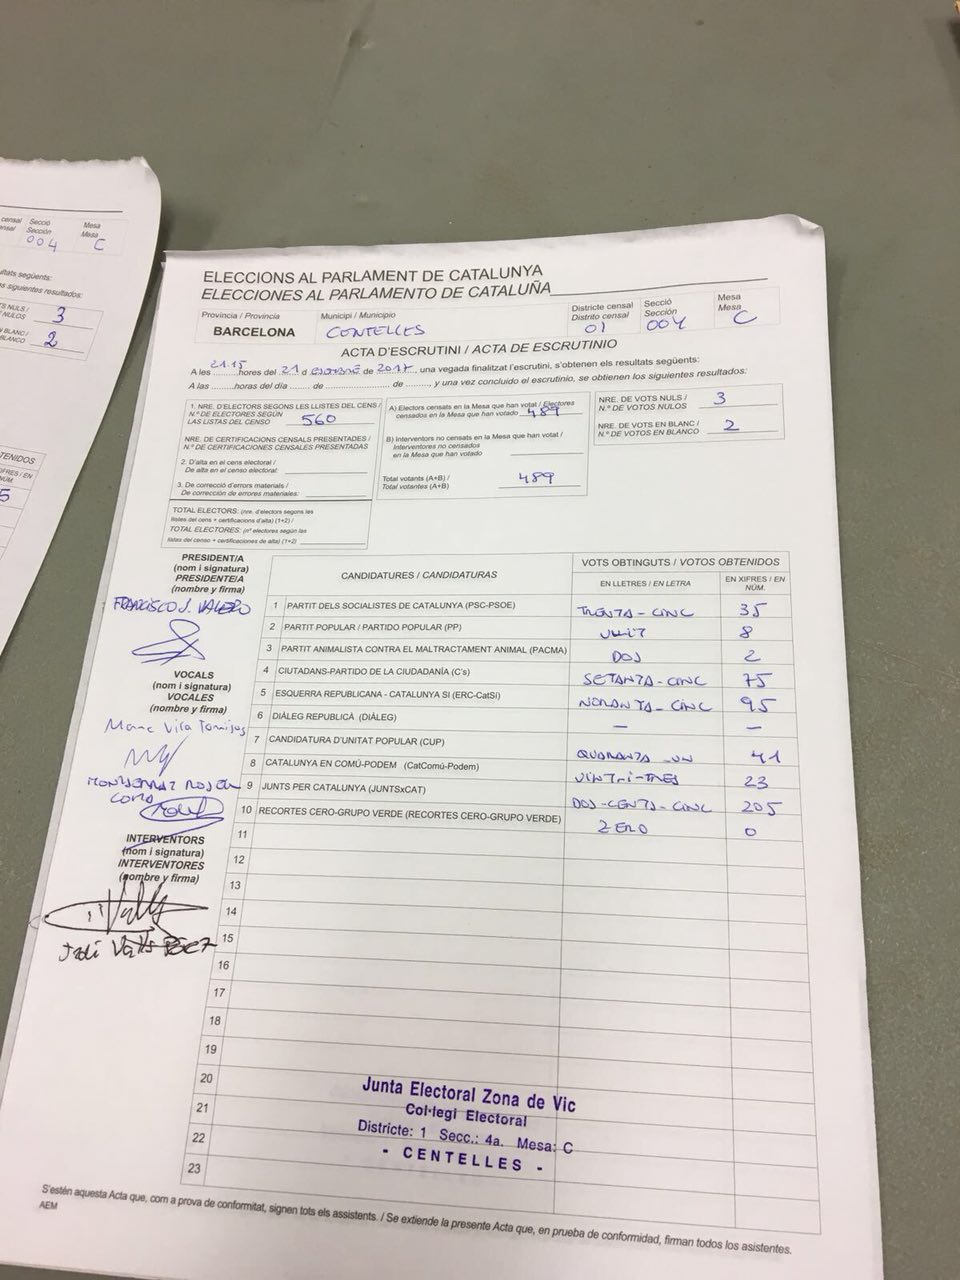 censal Secció Mesa
ensal Sección Mesa
004 C
ltats següents:
s siguientes resultados:
TS NULS / 3
NULOS
N BLANC / 2
BLANCO
TENIDOS
XIFRES / EN
NÚM.
5
ELECCIONS AL PARLAMENT DE CATALUNYA
ELECCIONES AL PARLAMENTO DE CATALUÑA
Província / Provincia Municipi / Municipio Districte censal Secció Mesa
Distrito censal Sección Mesa
BARCELONA CENTELLES 01 004 C
ACTA D'ESCRUTINI / ACTA DE ESCRUTINIO
A les 21.15 hores del 21 d de 2017, una vegada finalitzat l'escrutini, s'obtenen els resultats següents:
A las ........horas del día ....... de ........................ de ........, y una vez concluido el escrutinio, se obtienen los siguientes resultados:
1. NRE. D'ELECTORS SEGONS LES LLISTES DEL CENS /
N.º DE ELECTORES SEGÚN
LAS LISTAS DEL CENSO 560
NRE. DE CERTIFICACIONS CENSALS PRESENTADES /
N.º DE CERTIFICACIONES CENSALES PRESENTADAS
2. D'alta en el cens electoral /
De alta en el censo electoral:
3. De correcció d'errors materials /
De corrección de errores materiales:
TOTAL ELECTORS: (nre. d'electors segons les
llistes del cens + certificacions d'alta) (1+2) /
TOTAL ELECTORES: (nº electores según las
listas del censo + certificaciones de alta) (1+2)
A) Electors censats en la Mesa que han votat / Electores
censados en la Mesa que han votado 489
B) Interventors no censats en la Mesa que han votat /
Interventores no censados
en la Mesa que han votado
Total votants (A+B) / 489
Total votantes (A+B)
NRE. DE VOTS NULS / 3
N.º DE VOTOS NULOS
NRE. DE VOTS EN BLANC / 2
N.º DE VOTOS EN BLANCO
PRESIDENT/A
(nom i signatura)
PRESIDENTE/A
(nombre y firma)
FRANCISCO J. VALERO
VOCALS
(nom i signatura)
VOCALES
(nombre y firma)
Marc Vila
MONTSERRAT
INTERVENTORS
(nom i signatura)
INTERVENTORES
(nombre y firma)
Jordi
CANDIDATURES / CANDIDATURAS VOTS OBTINGUTS / VOTOS OBTENIDOS
EN LLETRES / EN LETRA EN XIFRES / EN
NÚM.
1 PARTIT DELS SOCIALISTES DE CATALUNYA (PSC-PSOE) TRENTA-CINC 35
2 PARTIT POPULAR / PARTIDO POPULAR (PP) VUIT 8
3 PARTIT ANIMALISTA CONTRA EL MALTRACTAMENT ANIMAL (PACMA) DOS 2
4 CIUTADANS-PARTIDO DE LA CIUDADANÍA (C's) SETANTA-CINC 75
5 ESQUERRA REPUBLICANA - CATALUNYA SÍ (ERC-CatSí) NORANTA-CINC 95
6 DIÀLEG REPUBLICÀ (DIÀLEG) — —
7 CANDIDATURA D'UNITAT POPULAR (CUP) QUARANTA-UN 41
8 CATALUNYA EN COMÚ-PODEM (CatComú-Podem) VINT-I-TRES 23
9 JUNTS PER CATALUNYA (JUNTSxCAT) DOS-CENTS-CINC 205
10 RECORTES CERO-GRUPO VERDE (RECORTES CERO-GRUPO VERDE) ZERO 0
11
12
13
14
15
16
17
18
19
20
21
22
23
Junta Electoral Zona de Vic
Col·legi Electoral
Districte: 1 Secc.: 4a. Mesa: C
- CENTELLES -
S'estén aquesta Acta que, com a prova de conformitat, signen tots els assistents. / Se extiende la presente Acta que, en prueba de conformidad, firman todos los asistentes.
AEM